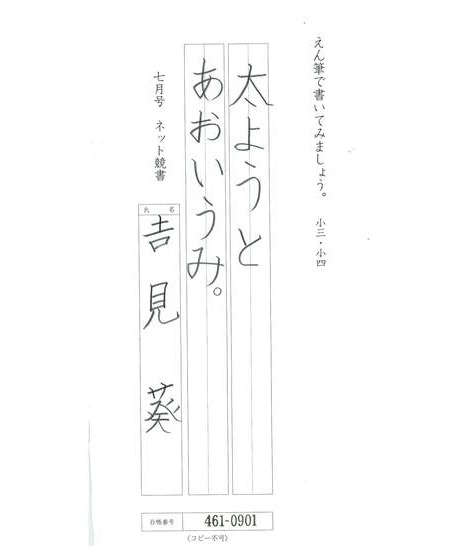 えん筆で書いてみましょう。 小三・小四
太ようと
あおいうみ。
七月号 ネット競書
氏名
吉見葵
合格番号 461-0901
(コピー不可)